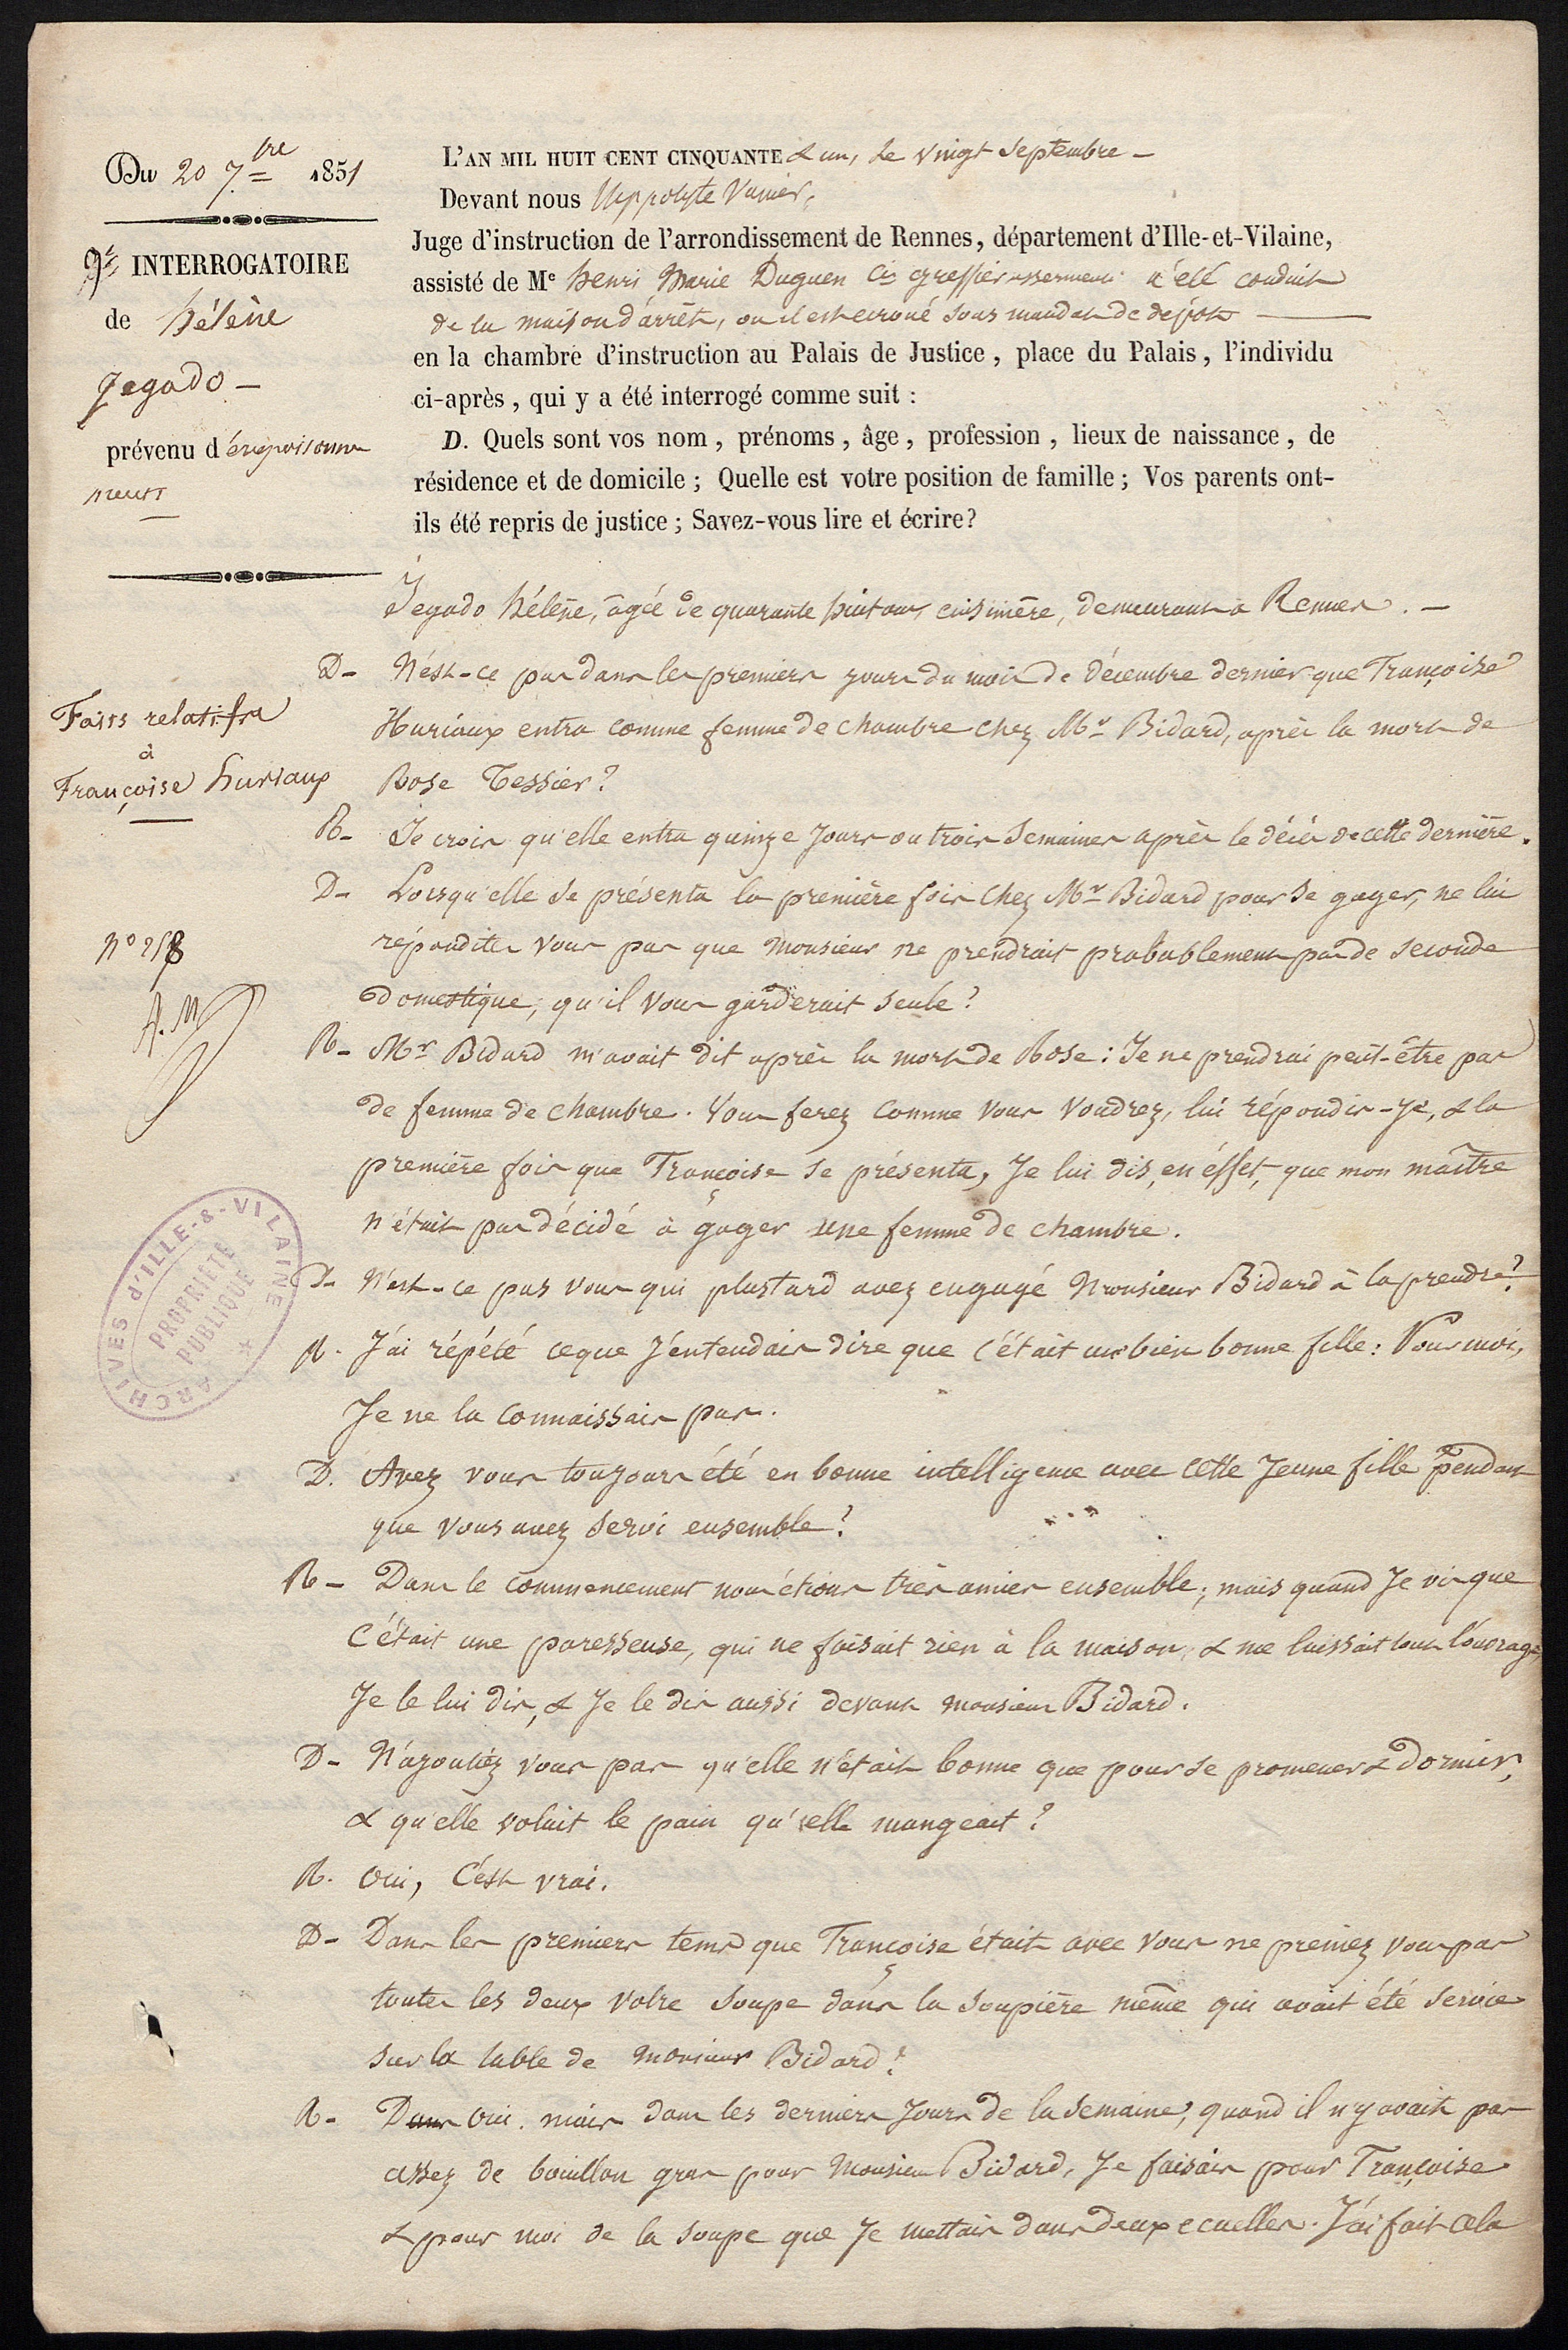 Du 20 7.bre 1851
9e INTERROGATOIRE
de hélène
Jegado —
prévenu d'empoisonne
ment
Faits relatifs
à
Françoise huriaux
A. M
ARCHIVES d'ILLE-&-VILAINE
PROPRIÉTÉ
PUBLIQUE
L'AN MIL HUIT CENT CINQUANTE & un, le vingt septembre —
Devant nous hippolyte Vanier,
Juge d'instruction de l'arrondissement de Rennes, département d'Ille-et-Vilaine,
assisté de Me henri Marie Duguen Cis greffier assermenté a été conduit
de la maison d'arrêt, où il est écroué sous mandat de dépôt —
en la chambre d'instruction au Palais de Justice, place du Palais, l'individu
ci-après, qui y a été interrogé comme suit :
D. Quels sont vos nom, prénoms, âge, profession, lieux de naissance, de
résidence et de domicile ; Quelle est votre position de famille ; Vos parents ont-
ils été repris de justice ; Savez-vous lire et écrire?
Jegado hélène, âgée de quarante huit ans, cuisinière, demeurant à Rennes. —
D- N'est-ce pas dans les premiers jours du mois de décembre dernier que Françoise
Huriaux entra comme femme de chambre chez Mr Bidard, après la mort de
Rose Tessier?
R- Je crois qu'elle entra quinze jours ou trois semaines après le décès de cette dernière.
D- Lorsqu'elle se présenta la première fois chez Mr Bidard pour se gager, ne lui
répondites vous pas que Monsieur ne prendrait probablement pas de seconde
domestique, qu'il vous garderait seule?
R- Mr Bidard m'avait dit après la mort de Rose : Je ne prendrai peut-être pas
de femme de chambre. Vous ferez comme vous voudrez, lui répondis-je, & la
première fois que Françoise se présenta, Je lui dis, en effet, que mon maître
n'était pas décidé à gager une femme de chambre.
D- N'est-ce pas vous qui plus tard avez engagé Monsieur Bidard à la prendre?
R. J'ai répété ce que J'entendais dire que c'était une bien bonne fille : Pour moi,
Je ne la connaissais pas.
D. Avez vous toujours été en bonne intelligence avec cette Jeune fille pendant
que vous avez servi ensemble?
R- Dans le commencement nous étions très amies ensemble ; mais quand Je vis que
c'était une paresseuse, qui ne faisait rien à la maison, & me laissait tout l'ouvrage,
Je le lui dis, & Je le dis aussi devant monsieur Bidard.
D- N'ajoutiez vous pas qu'elle n'était bonne que pour se promener & dormir,
& qu'elle volait le pain qu'elle mangeait?
R. Oui, c'est vrai.
D- Dans les premiers tems que Françoise était avec vous ne preniez vous pas
toutes les deux votre soupe dans la soupière même qui avait été servie
sur la table de monsieur Bidard?
R- Dans Oui. mais dans les derniers Jours de la semaine, quand il n'y avait pas
assez de bouillon gras pour Monsieur Bidard, Je faisais pour Françoise
& pour moi de la soupe que Je mettais dans deux ecuelles. J'ai fait cela